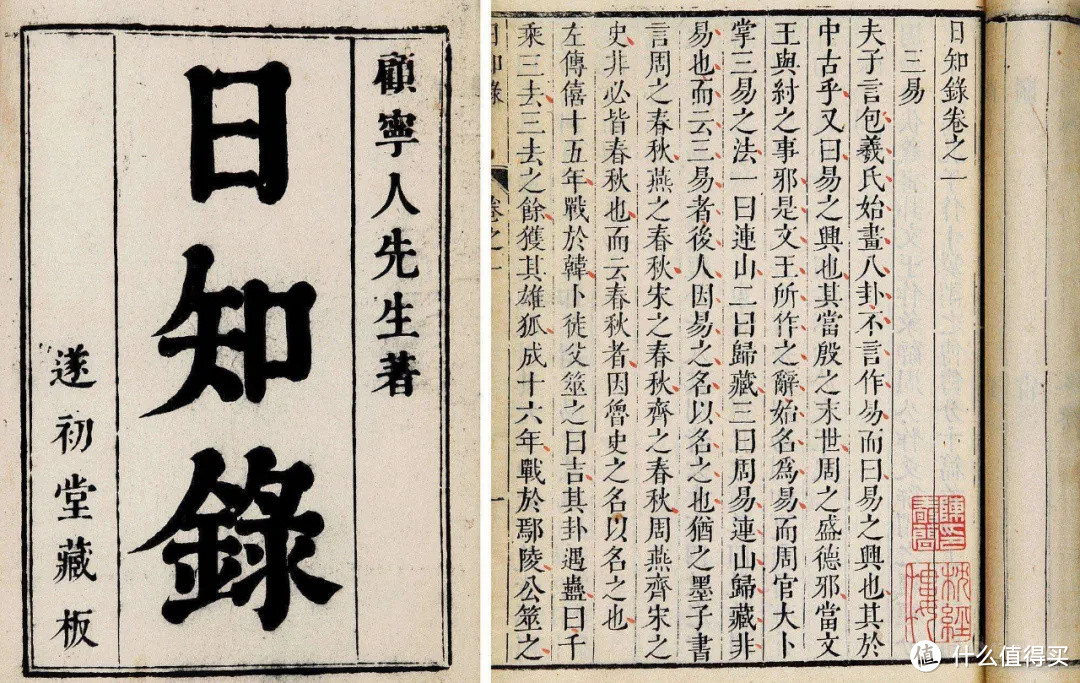 顧寧人先生著
日知錄
遂初堂藏板
日知錄卷之一
三易
夫子言包羲氏始畫八卦不言作易而曰易之興也其於
中古乎又曰易之興也其當殷之末世周之盛德邪當文
王與紂之事邪是文王所作之辭始名爲易而周官大卜
掌三易之法一曰連山二曰歸藏三曰周易連山歸藏非
易也而云三易者後人因易之名以名之也猶之墨子書
言周之春秋燕之春秋宋之春秋齊之春秋周燕齊宋之
史非必皆春秋也而云春秋者因魯史之名以名之也
左傳僖十五年戰於韓卜徒父筮之曰吉其卦遇蠱曰千
乘三去三去之餘獲其雄狐成十六年戰於鄢陵公筮之
日知錄 卷之一 一
值 什么值得买